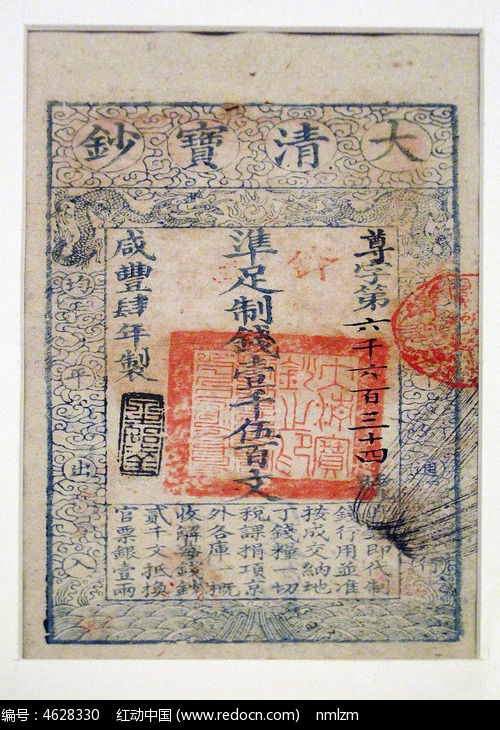 大清寶鈔
通行
尊字第六千六百三十四號
準足制錢壹千伍百文
咸豐肆年製
均平出入
鈔即代制
錢行用並准
按成交納地
丁錢糧一切
稅課捐項京
外各庫一概
收解每錢鈔
貳千文抵換
官票銀壹兩
大清寶鈔之印
编号：4628330 红动中国 (www.redocn.com) nmlzm